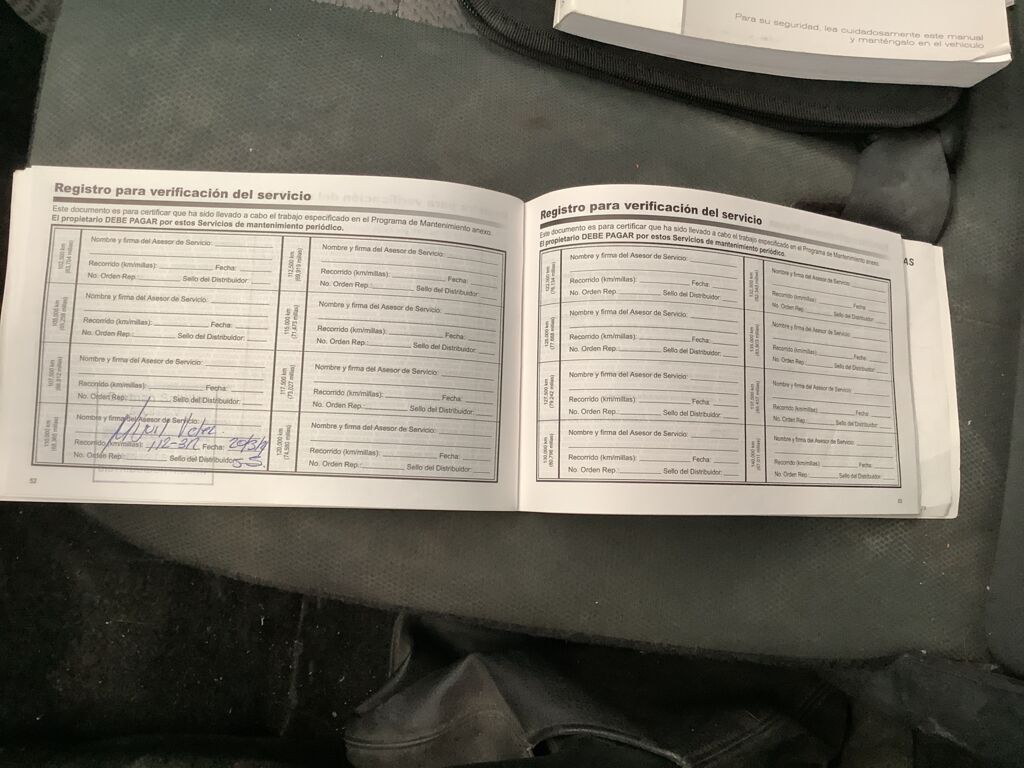 Para su seguridad, lea cuidadosamente este manual
y manténgalo en el vehículo
Registro para verificación del servicio
Este documento es para certificar que ha sido llevado a cabo el trabajo especificado en el Programa de Mantenimiento anexo.
El propietario DEBE PAGAR por estos Servicios de mantenimiento periódico.
Nombre y firma del Asesor de Servicio:
Recorrido (km/millas): Fecha:
No. Orden Rep.: Sello del Distribuidor:
105,000 km
Nombre y firma del Asesor de Servicio:
Recorrido (km/millas): Fecha:
No. Orden Rep.: Sello del Distribuidor:
107,500 km
Nombre y firma del Asesor de Servicio:
Recorrido (km/millas): Fecha:
No. Orden Rep.: Sello del Distribuidor:
110,000 km
Nombre y firma del Asesor de Servicio:
Recorrido (km/millas): Fecha:
No. Orden Rep.: Sello del Distribuidor:
112,500 km
(69,919 millas)
Nombre y firma del Asesor de Servicio:
Recorrido (km/millas): Fecha:
No. Orden Rep.: Sello del Distribuidor:
115,000 km
(71,473 millas)
Nombre y firma del Asesor de Servicio:
Recorrido (km/millas): Fecha:
No. Orden Rep.: Sello del Distribuidor:
117,500 km
(73,027 millas)
Nombre y firma del Asesor de Servicio:
Recorrido (km/millas): Fecha:
No. Orden Rep.: Sello del Distribuidor:
120,000 km
(74,580 millas)
Nombre y firma del Asesor de Servicio:
Recorrido (km/millas): Fecha:
No. Orden Rep.: Sello del Distribuidor:
52
Registro para verificación del servicio
Este documento es para certificar que ha sido llevado a cabo el trabajo especificado en el Programa de Mantenimiento anexo.
El propietario DEBE PAGAR por estos Servicios de mantenimiento periódico.
122,500 km
(76,134 millas)
Nombre y firma del Asesor de Servicio:
Recorrido (km/millas): Fecha:
No. Orden Rep.: Sello del Distribuidor:
125,000 km
(77,688 millas)
Nombre y firma del Asesor de Servicio:
Recorrido (km/millas): Fecha:
No. Orden Rep.: Sello del Distribuidor:
127,500 km
(79,242 millas)
Nombre y firma del Asesor de Servicio:
Recorrido (km/millas): Fecha:
No. Orden Rep.: Sello del Distribuidor:
130,000 km
(80,796 millas)
Nombre y firma del Asesor de Servicio:
Recorrido (km/millas): Fecha:
No. Orden Rep.: Sello del Distribuidor:
Nombre y firma del Asesor de Servicio:
Recorrido (km/millas): Fecha:
No. Orden Rep.: Sello del Distribuidor:
Nombre y firma del Asesor de Servicio:
Recorrido (km/millas): Fecha:
No. Orden Rep.: Sello del Distribuidor:
Nombre y firma del Asesor de Servicio:
Recorrido (km/millas): Fecha:
No. Orden Rep.: Sello del Distribuidor:
Nombre y firma del Asesor de Servicio:
Recorrido (km/millas): Fecha:
No. Orden Rep.: Sello del Distribuidor:
AS